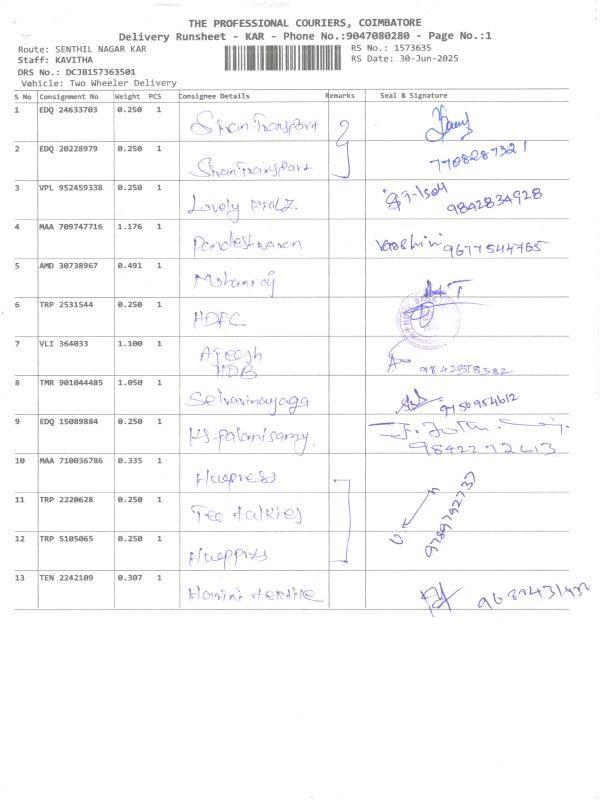 THE PROFESSIONAL COURIERS, COIMBATORE
Delivery Runsheet - KAR - Phone No.:9047080280 - Page No.:1
Route: SENTHIL NAGAR KAR RS No.: 1573635
Staff: KAVITHA RS Date: 30-Jun-2025
DRS No.: DCJB157363501
Vehicle: Two Wheeler Delivery
S No Consignment No Weight PCS Consignee Details Remarks Seal & Signature
1 EDQ 24633703 0.250 1 Transport
2 EDQ 20228979 0.250 1 Transport 7708287321
3 VPL 952459338 0.250 1 Lovely 9842834928
4 MAA 709747716 1.176 1 Pandeshwaran Varshini 9677544765
5 AMD 30738967 0.491 1 Mohanraj
6 TRP 2531544 0.250 1 HDFC
7 VLI 364033 1.100 1 Ajeesh
HDB
8 TMR 901044485 1.050 1 Selvavinayaga 9750954612
9 EDQ 15089884 0.250 1 KS. Palanisamy. 9842272613
10 MAA 710036786 0.335 1
11 TRP 2220628 0.250 1 Tee talkies 9789792737
12 TRP 5105065 0.250 1
13 TEN 2242109 0.307 1 Harini textile